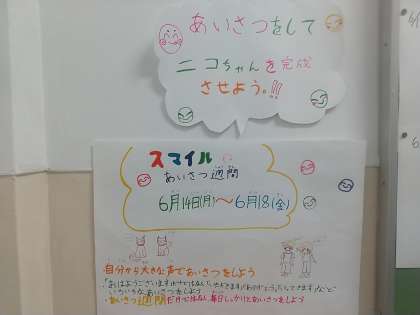 あいさつをして
ニコちゃんを完成
させよう。!!
スマイル
あいさつ週間
6月14日(月)～6月18(金)
自分から大きな声であいさつをしよう
いろいろなあいさつをしよう
あいさつ週間だけではなく、毎日しっかりとあいさつをしよう